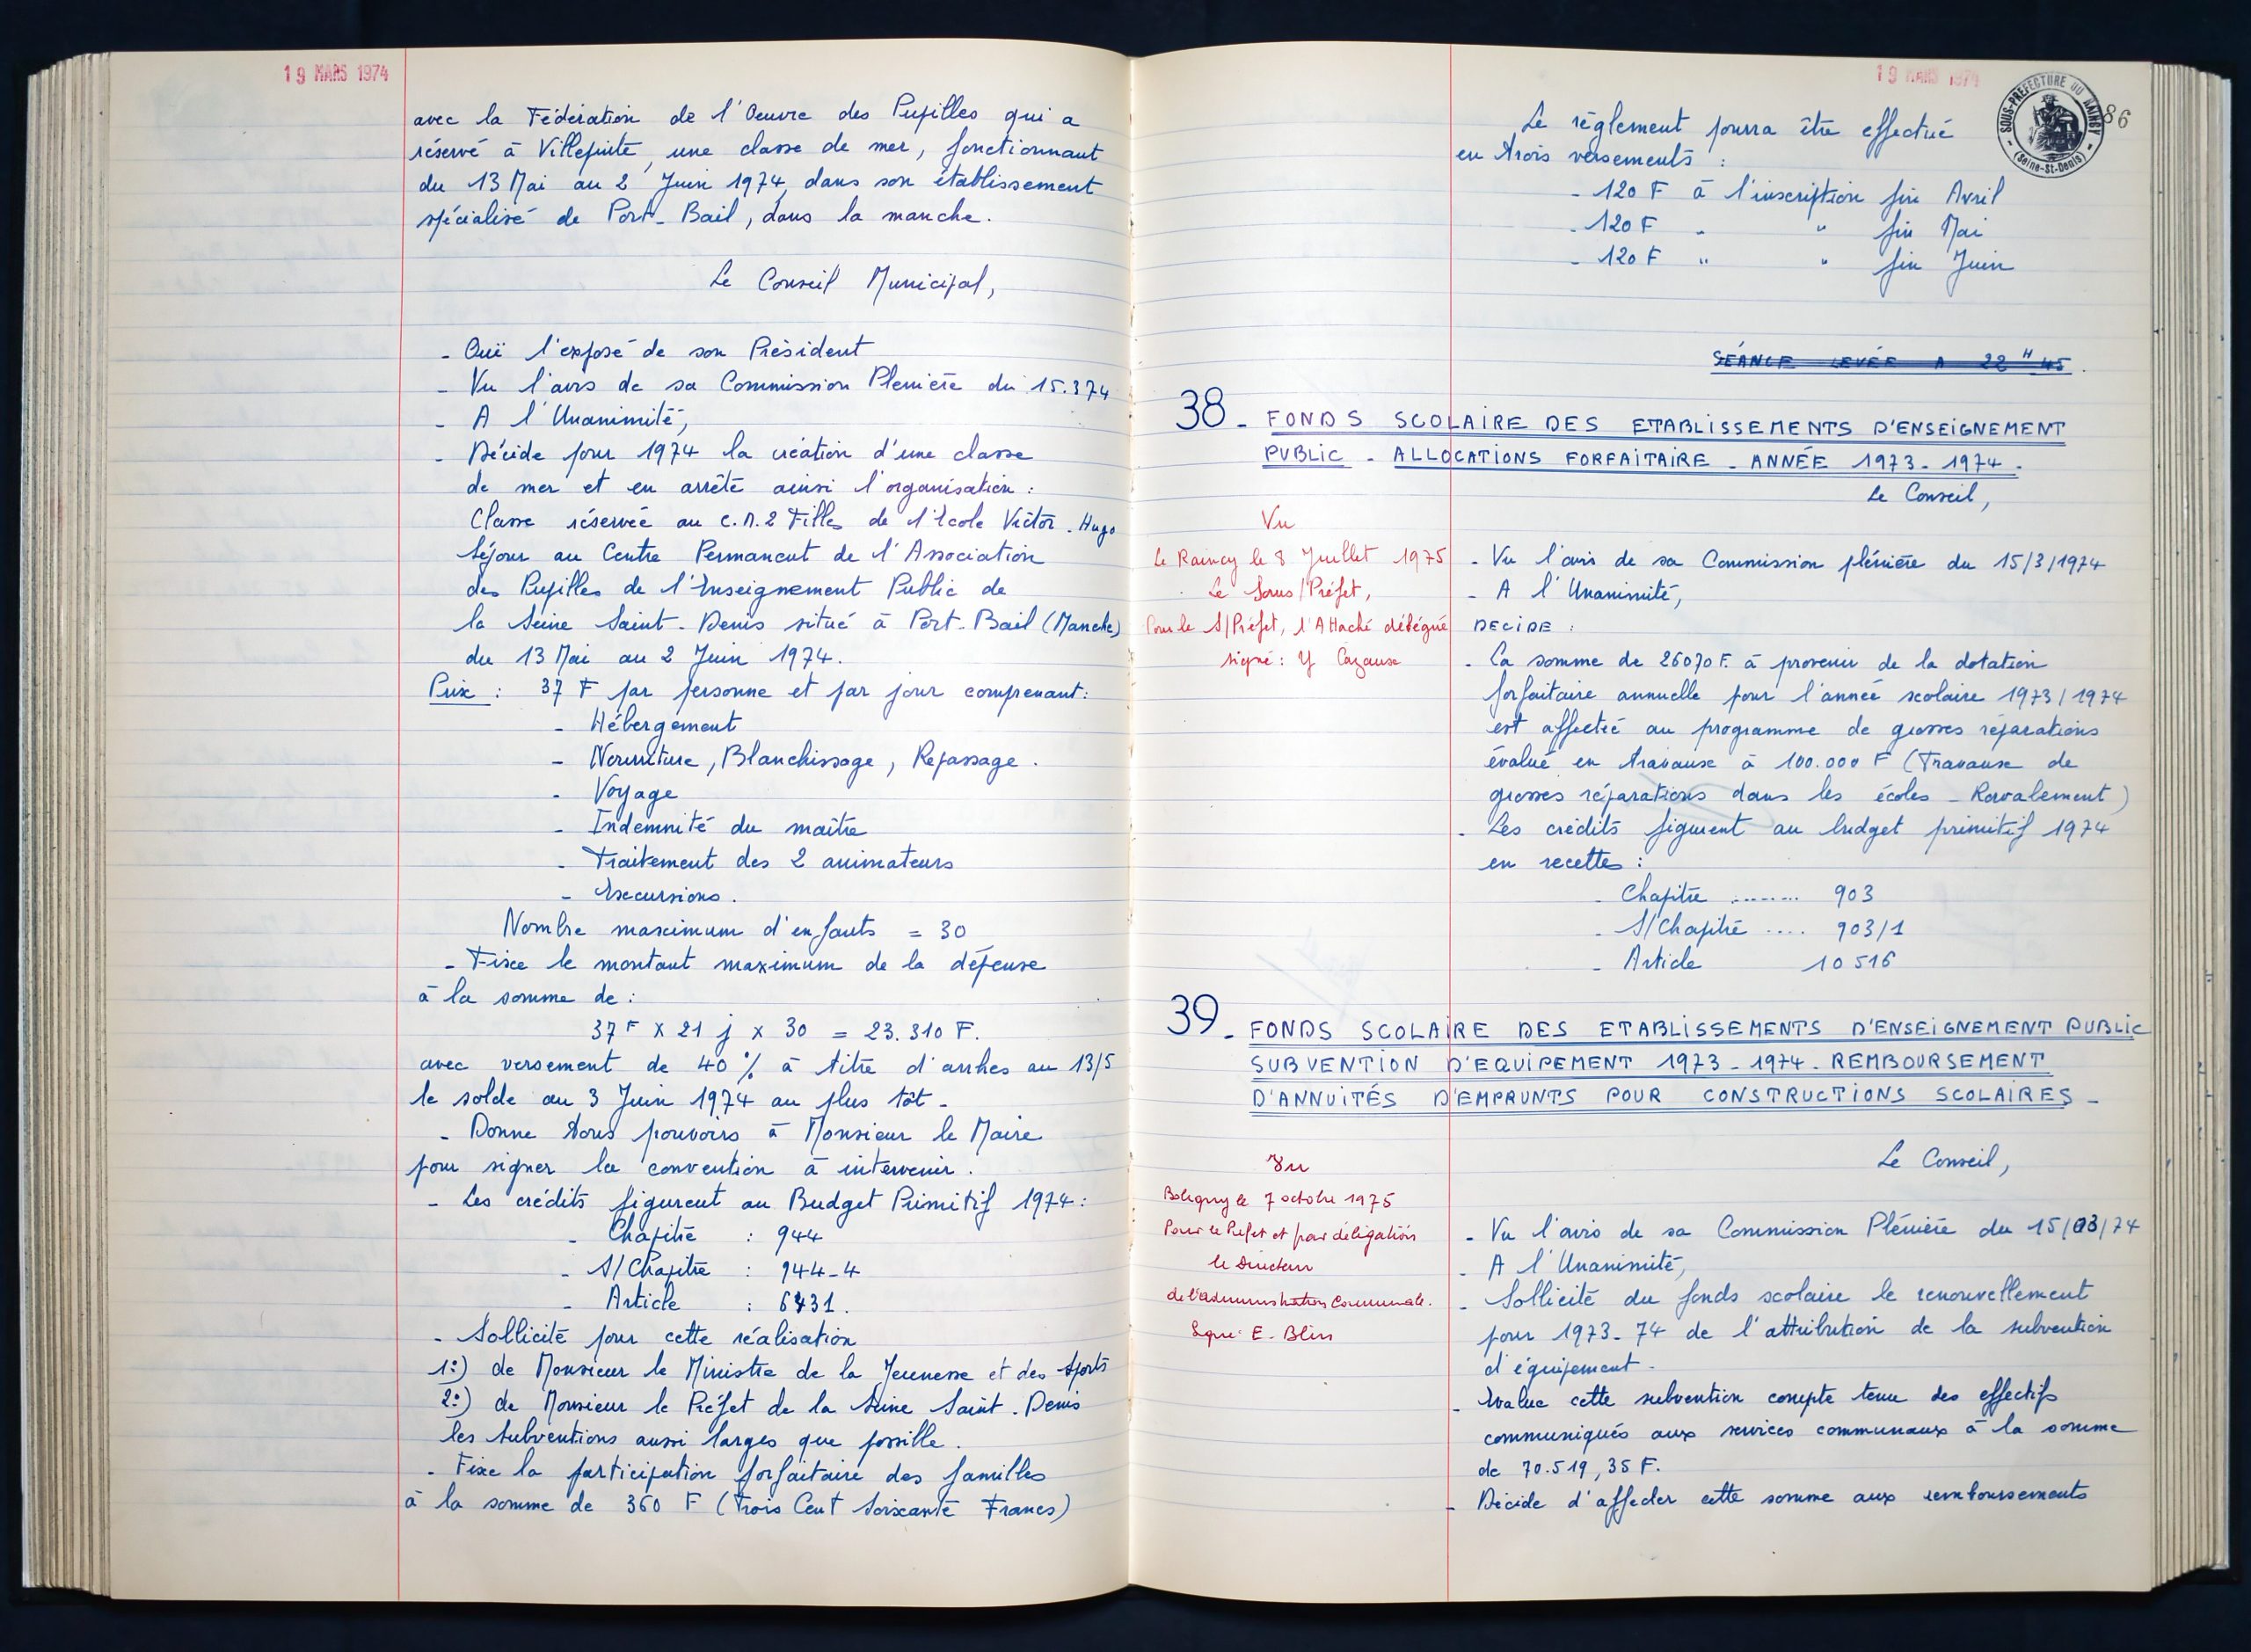 19 MARS 1974
avec la Fédération de l'Oeuvre des Pupilles qui a
réservé à Villepinte, une classe de mer, fonctionnant
du 13 Mai au 2 Juin 1974, dans son établissement
spécialisé de Port-Bail, dans la manche.
Le Conseil Municipal,
- Ouï l'exposé de son Président
- Vu l'avis de sa Commission Plenière du 15.374
- A l'Unanimité,
- Décide pour 1974 la création d'une classe
de mer et en arrête ainsi l'organisation :
Classe réservée au C.M.2 Filles de l'Ecole Victor-Hugo
Séjour au Centre Permanent de l'Association
des Pupilles de l'Enseignement Public de
la Seine Saint-Denis situé à Port-Bail (Manche)
du 13 Mai au 2 Juin 1974.
Prix : 37 F par personne et par jour comprenant :
- Hébergement
- Nourriture, Blanchissage, Repassage.
- Voyage
- Indemnité du maître
- Traitement des 2 animateurs
- Excursions.
Nombre maximum d'enfants = 30
- Fixe le montant maximum de la dépense
à la somme de :
37 F x 21 j x 30 = 23.310 F.
avec versement de 40 % à titre d'arrhes au 13/5
le solde au 3 Juin 1974 au plus tôt -
- Donne tous pouvoirs à Monsieur le Maire
pour signer la convention à intervenir.
- Les crédits figurent au Budget Primitif 1974 :
- Chapitre : 944
- S/Chapitre : 944-4
- Article : 6431.
- Sollicite pour cette réalisation
1°) de Monsieur le Ministre de la Jeunesse et des Sports
2°) de Monsieur le Préfet de la Seine Saint-Denis
les subventions aussi larges que possible.
- Fixe la participation forfaitaire des familles
à la somme de 360 F (Trois Cent Soixante Francs)
19 MARS 1974
SOUS-PREFECTURE DU RAINCY
(Seine-St-Denis)
86
Le règlement pourra être effectué
en trois versements :
- 120 F à l'inscription fin Avril
- 120 F " " fin Mai
- 120 F " " fin Juin
SÉANCE LEVÉE A 22 H 45.
38 - FONDS SCOLAIRE DES ETABLISSEMENTS D'ENSEIGNEMENT
PUBLIC - ALLOCATIONS FORFAITAIRE - ANNÉE 1973-1974 -
Le Conseil,
Vu
Le Raincy le 8 Juillet 1975
Le Sous/Préfet,
Pour le S/Préfet, l'Attaché délégué
signé : Y Cazaux
- Vu l'avis de sa Commission plénière du 15/3/1974
- A l'Unanimité,
DECIDE :
- La somme de 26070 F. à provenir de la dotation
forfaitaire annuelle pour l'année scolaire 1973/1974
est affectée au programme de grosses réparations
évalué en travaux à 100.000 F (Travaux de
grosses réparations dans les écoles - Ravalement)
- Les crédits figurent au budget primitif 1974
en recettes :
- Chapitre ........ 903
- S/Chapitre .... 903/1
- Article 10516
39 - FONDS SCOLAIRE DES ETABLISSEMENTS D'ENSEIGNEMENT PUBLIC
SUBVENTION D'EQUIPEMENT 1973-1974 - REMBOURSEMENT
D'ANNUITÉS D'EMPRUNTS POUR CONSTRUCTIONS SCOLAIRES -
Le Conseil,
Vu
Bobigny le 7 octobre 1975
Pour le Préfet et par délégation
le Directeur
de l'administration Communale.
Signé : E. Blin
- Vu l'avis de sa Commission Plénière du 15/03/74
- A l'Unanimité,
- Sollicite du fonds scolaire le renouvellement
pour 1973-74 de l'attribution de la subvention
d'équipement -
- Evalue cette subvention compte tenu des effectifs
communiqués aux services communaux à la somme
de 70.519,35 F.
- Décide d'affecter cette somme aux remboursements